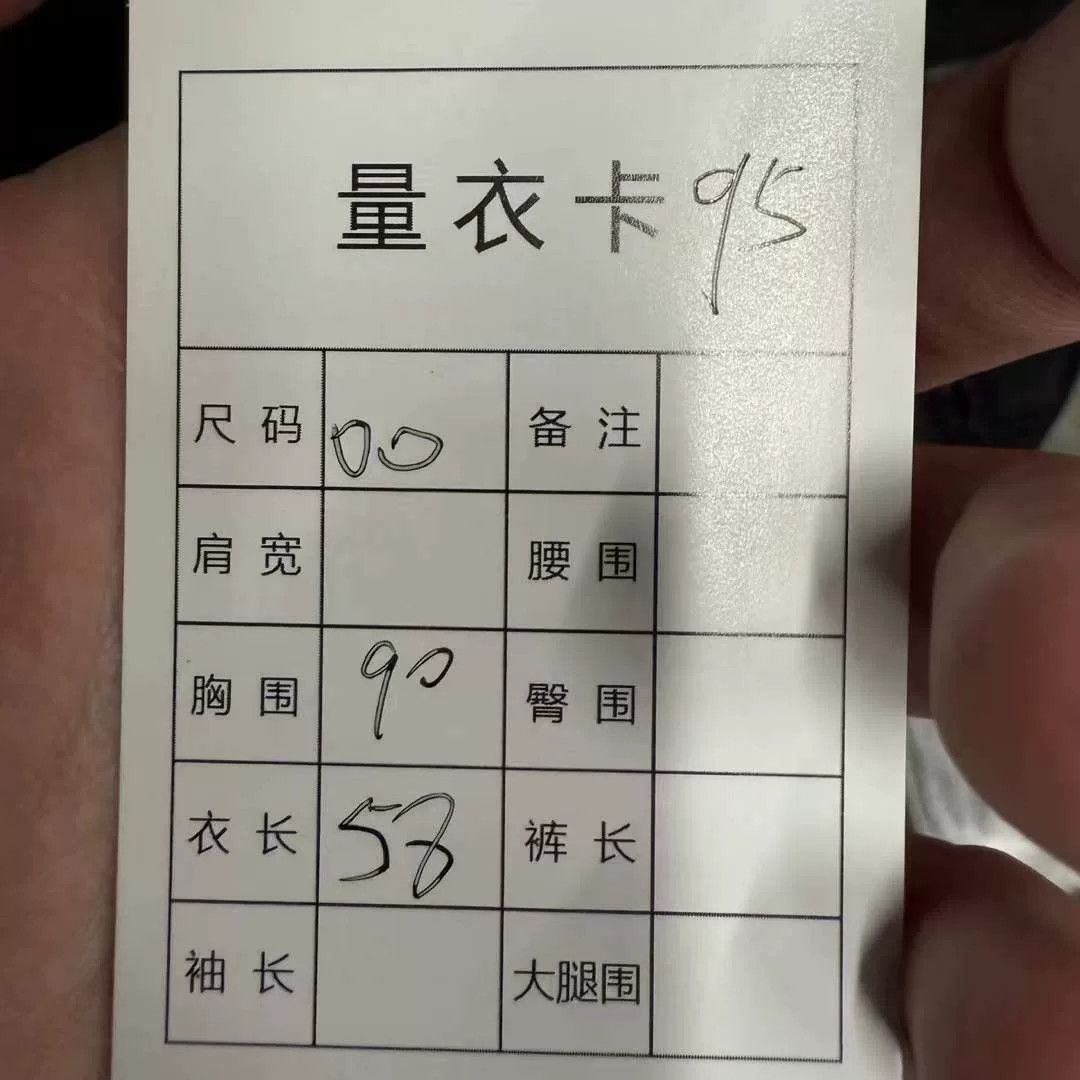 量衣卡 95
尺码 00 备注
肩宽 腰围
胸围 90 臀围
衣长 58 裤长
袖长 大腿围